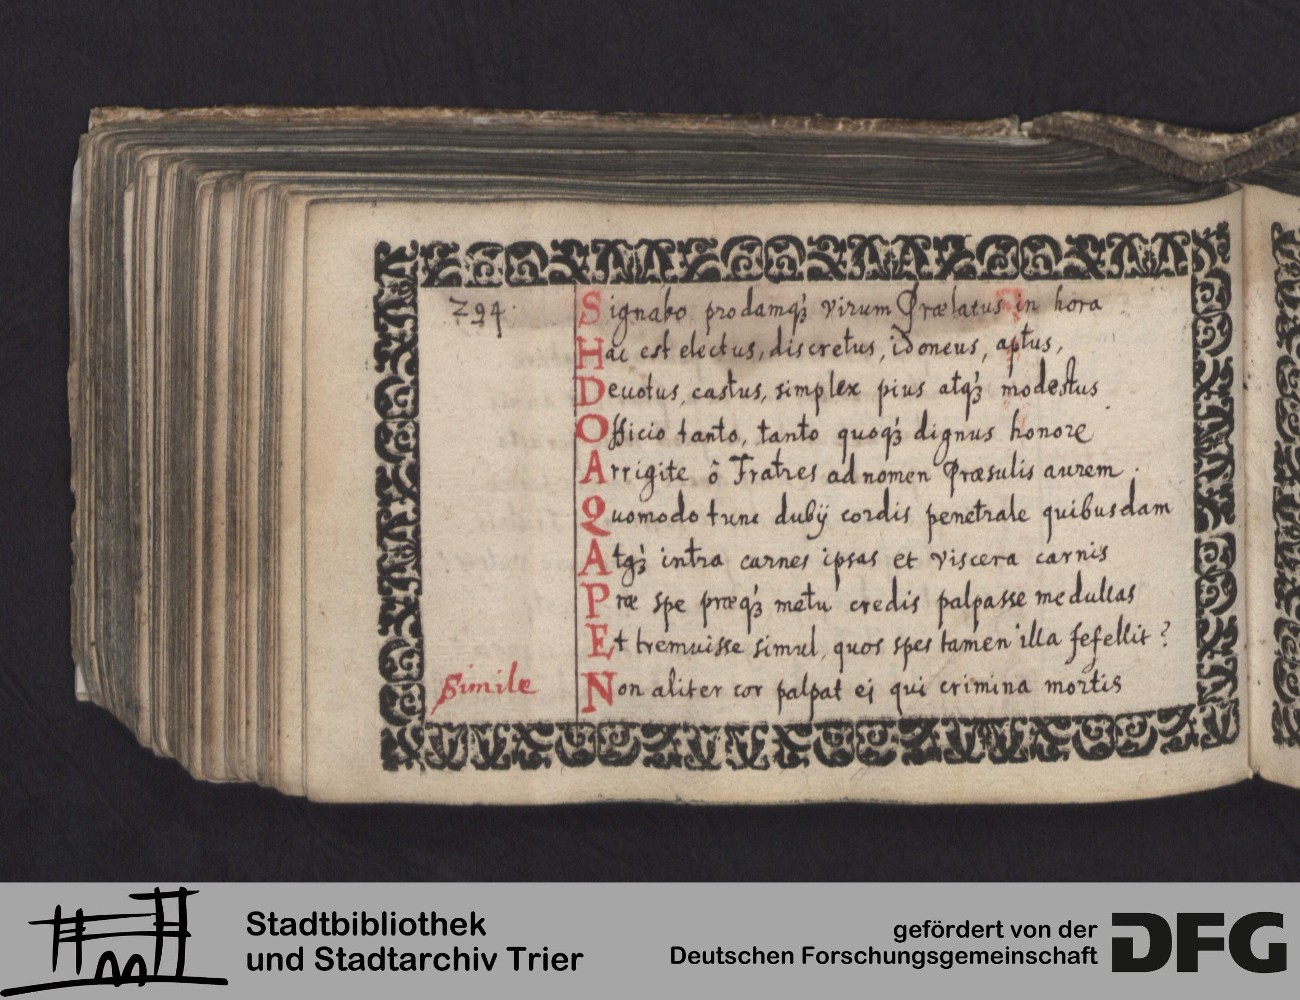 294.
Signabo prodamq́ꝫ virum Prælatus in hora
Hac est electus, discretus, idoneus, aptus,
Deuotus, castus, simplex pius atq́ꝫ modestus
Officio tanto, tanto quoq́ꝫ dignus honore
Arrigite ô Fratres ad nomen Præsulis aurem.
Quomodo tunc dubÿ cordis penetrale quibusdam
Atq́ꝫ intra carnes ipsas et viscera carnis
Præ spe præq́ꝫ metu credis palpasse medullas
Et tremuisse simul, quos spes tamen illa fefellit?
Simile
Non aliter cor palpat ej qui crimina mortis
Stadtbibliothek
und Stadtarchiv Trier
gefördert von der
Deutschen Forschungsgemeinschaft
DFG